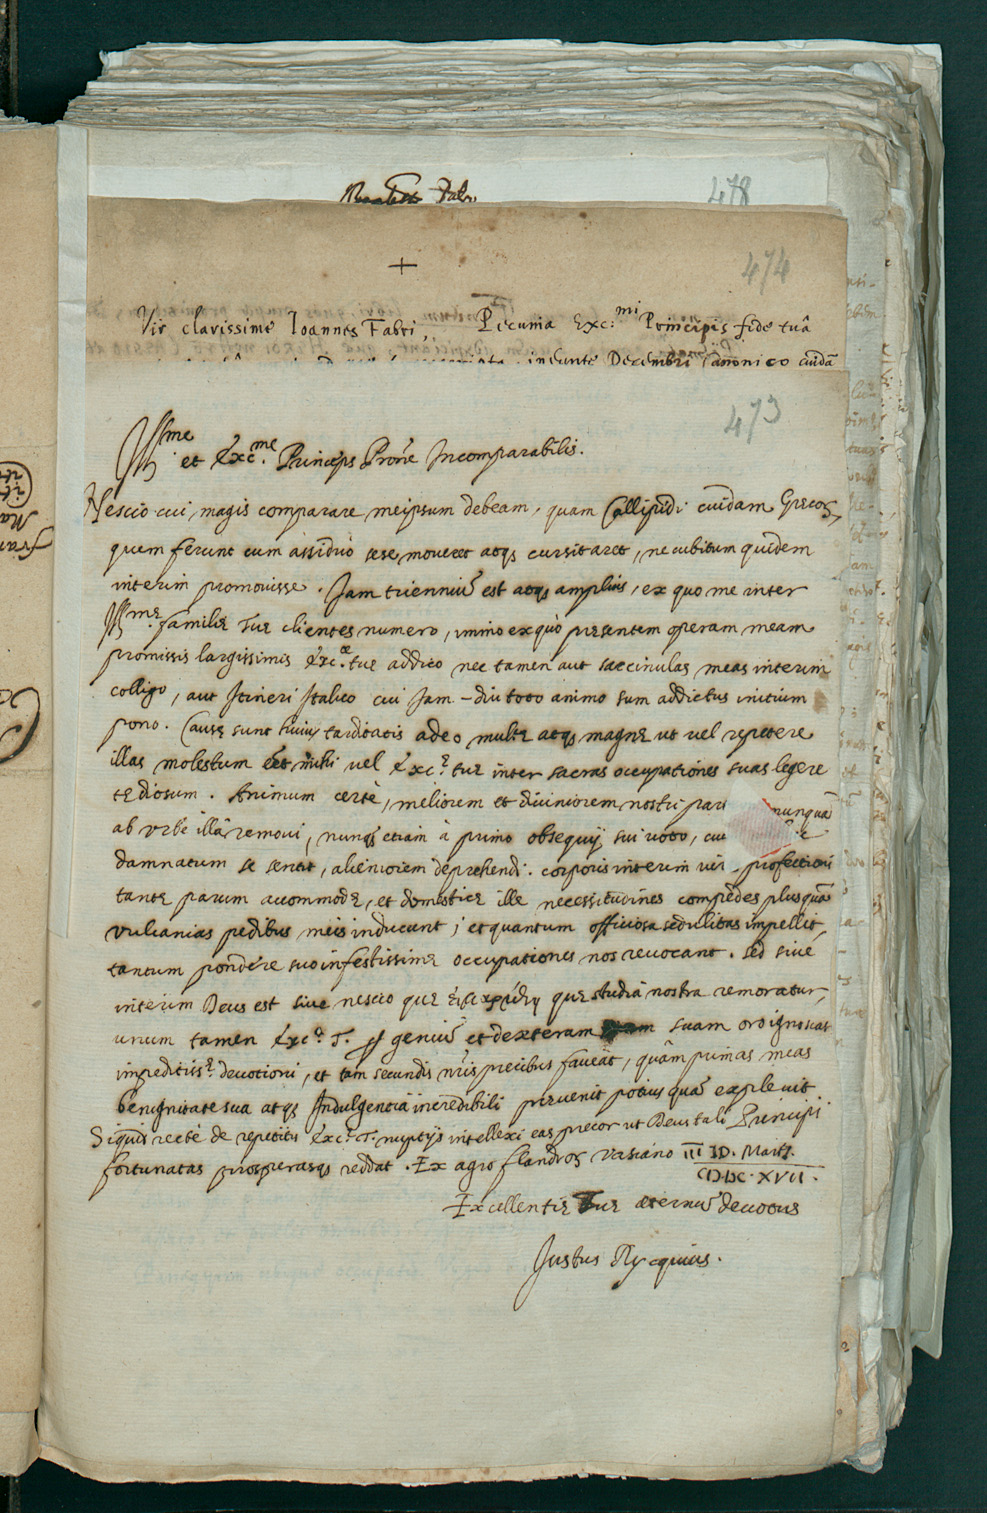 478
474
+
Vir clarissime Ioannes Fabri, Pecunia Exc:mi Principis fide tuâ
ineunte Decembri Canonico cuidā
473
Illme et Exc.me Princeps Prōne Incomparabilis.
Nescio cui, magis comparare meipsum debeam, quam Callipidi cuidam Grecoȝ,
quem ferunt cum assiduò sese moueret atqȝ cursitaret, ne cubitum quidem
interim promouisse. Jam trienniū est atqȝ amplius, ex quo me inter
Illme Familię Tuę clientes numero, immo ex quo pręsentem operam meam
promissis largissimis Exc.æ tuę addico nec tamen aut sarcinulas meas interim
colligo, aut Itineri Italico cui Jam-diu toto animo sum addictus initium
pono. Causę sunt huius tarditatis adeo multę atqȝ magnę ut vel repetere
illas molestum mihi vel Exc.ę tuę inter sacras occupationes suas legere
tędiosum. Animum certè, meliorem et diuiniorem nostri par nunquā
ab vrbe illâ remoui, nunqȝ etiam à primo obsequij sui voto, cui
damnatum se sentit, alieniorem deprehendi. corporis interim profectioni
tantę parum accommodę, et domesticę ille necessitudines compedes plusquā
vulcanias pedibus meis inducunt; et quantum officiosa sedulitas impellit,
tantum pondere suo infestissimę occupationes nos reuocant. Sed siue
interim Deus est siue nescio quę quę studia nostra remoratur,
unum tamen Exc.ę T. geniū et dexteram suam oro ignoscat
impeditiss.ę deuotioni, et tam secundis nr̄is precibus faueat, quâm primas meas
benignitate sua atqȝ Indulgentiâ incredibili pręuenit potius quā expleuit.
Siquid rectè de repetitis Exc.ę T. nuptijs intellexi eas precor ut Deus tali Principi
fortunatas prosperasqȝ reddat. Ex agro flandroȝ vasiano III ID. Martȝ.
CIƆ.IƆC.XVII.
Excellentię Tuę æternū deuotus
Justus Rycquius.